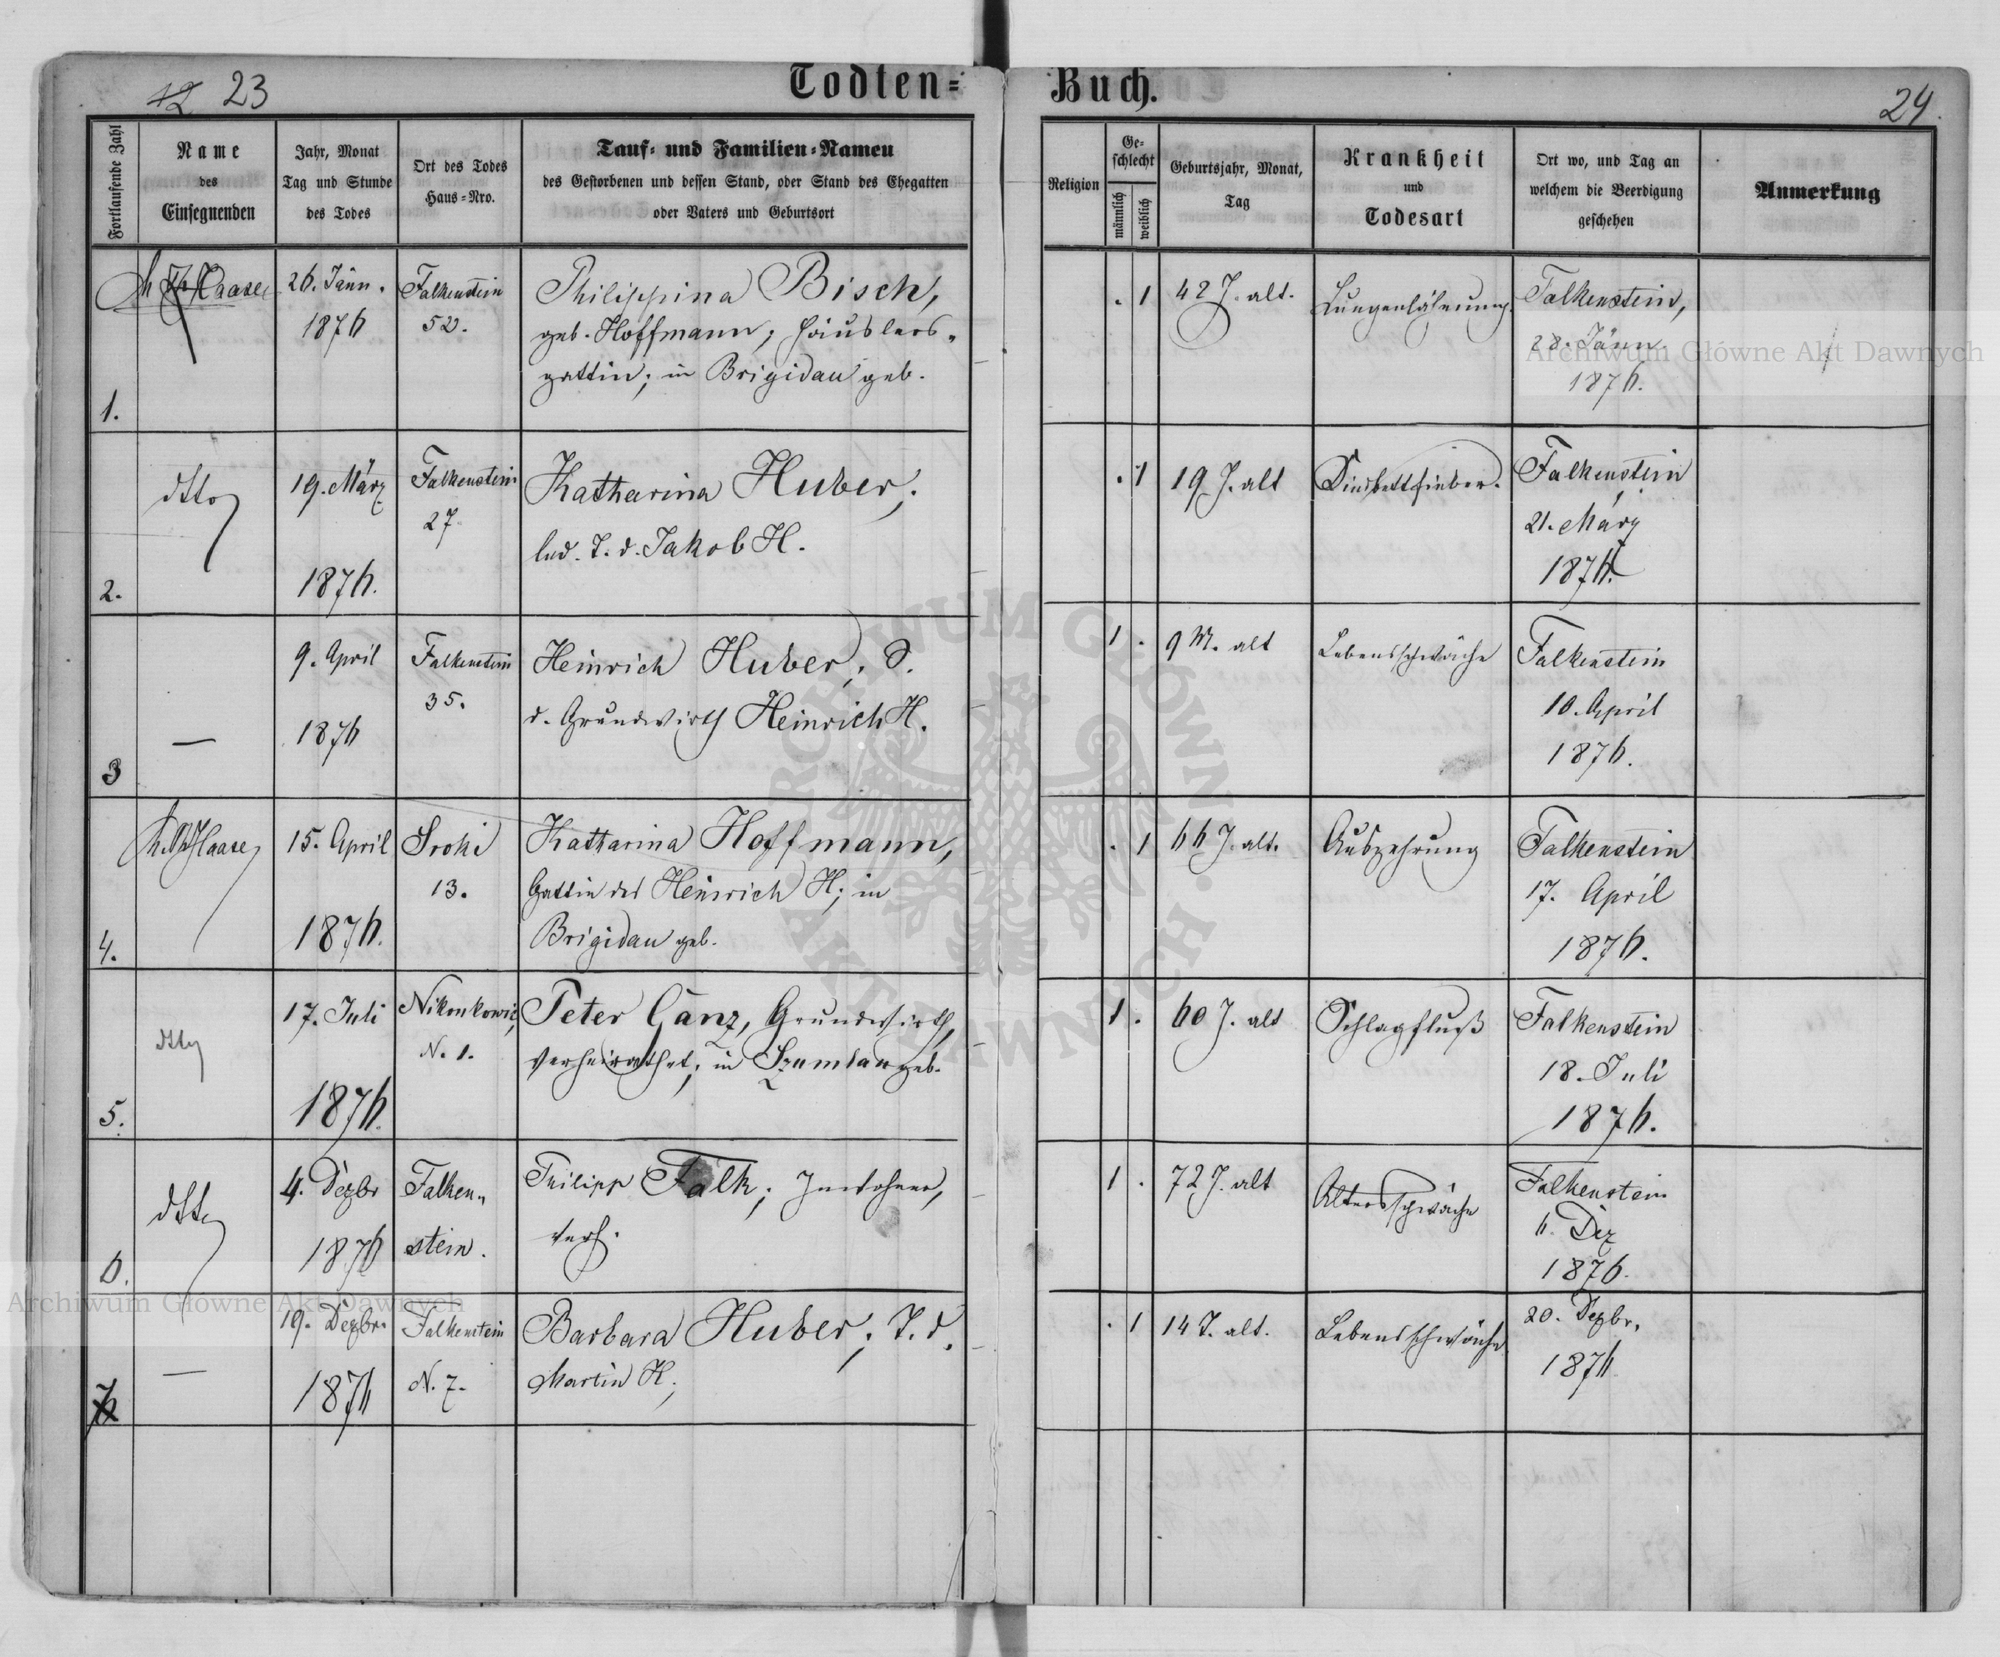 12 23
Todten=
Buch.
24.
Fortlaufende Zahl
Name
des
Einsegnenden
Jahr, Monat
Tag und Stunde
des Todes
Ort des Todes
Haus=Nro.
Tauf= und Familien=Namen
des Gestorbenen und dessen Stand, oder Stand des Ehegatten
oder Vaters und Geburtsort
Religion
Ge=
schlecht
männlich
weiblich
Geburtsjahr, Monat,
Tag
Krankheit
und
Todesart
Ort wo, und Tag an
welchem die Beerdigung
geschehen
Anmerkung
1.
Haase
26. Jänn.
1876
Falkenstein
52.
Philippina Bisch,
geb. Hoffmann, Häuslers-
gattin; in Brigidau geb.
. 1
42 J. alt.
Lungenlähmung.
Falkenstein,
28. Jänn.
1876.
2.
dtto
19. März
1876.
Falkenstein
27.
Katharina Huber;
led. T. d. Jakob H.
. 1
19 J. alt
Kindbettfieber.
Falkenstein
21. März
1876.
3
—
9. April
1876
Falkenstein
35.
Heinrich Huber, S.
d. Grundwirth Heinrich H.
1 .
9 M. alt
Lebensschwäche
Falkenstein
10. April
1876.
4.
Haase
15. April
1876.
Sroki
13.
Katharina Hoffmann,
Gattin des Heinrich H; in
Brigidau geb.
. 1
66 J. alt.
Auszehrung
Falkenstein
17. April
1876.
5.
dtto
17. Juli
1876.
Nikonkowic,
N. 1.
Peter Ganz, Grundwirth,
verheirathet; in Szumlau geb.
1 .
60 J. alt
Schlagfluß
Falkenstein
18. Juli
1876.
6.
dtto
4. Dezbr
1876
Falken-
stein.
Philipp Falk; Inwohner,
verh.
1 .
72 J. alt
Altersschwäche
Falkenstein
6. Dez
1876.
7
—
19. Dezbr.
1876
Falkenstein
N. 7.
Barbara Huber; T. d.
Martin H.;
. 1
14 T. alt.
Lebensschwäche
20. Dezbr.
1876
Archiwum Główne Akt Dawnych
Archiwum Główne Akt Dawnych
ARCHIWUM GŁÓWNE AKT DAWNYCH